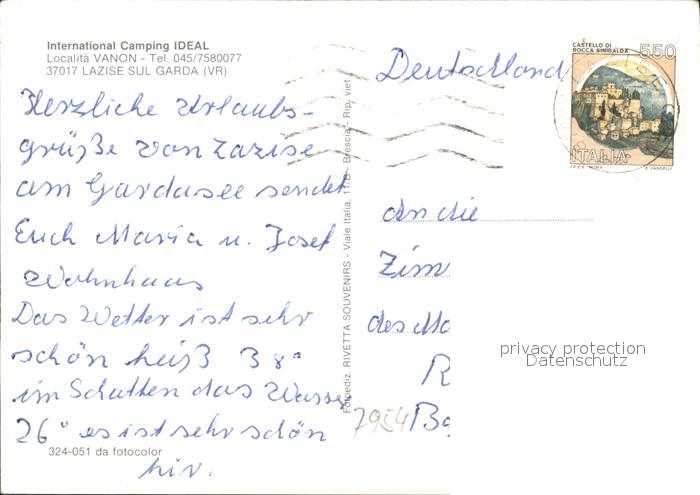 International Camping IDEAL
Località VANON - Tel. 045/7580077
37017 LAZISE SUL GARDA (VR)
Herzliche Urlaubs-
grüße von Lazise
am Gardasee sendet
Euch Maria u. Josef
Wohnhaas
Das Wetter ist sehr
schön heiß 38°
im Schatten das Wasser
26° es ist sehr schön
hir.
324-051 da fotocolor
Fotoediz. RIVETTA SOUVENIRS - Viale Italia, 11/B - Brescia - Rip. viet.
Deutschland
CASTELLO DI
ROCCA SINIBALDA
550
ITALIA
I.P.Z.S. ROMA
E. VANGELLI
An die
Zim
des Ma
R
7954 Ba
privacy protection
Datenschutz